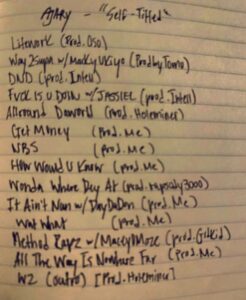 AJARY - "Self-Titled"
Lifework (Prod. Oso)
Way 2 Siymn w/ MackyUKiyo (Prod by Tomo)
DND (prod. Intell)
Fuck Is U Doin w/ JASSIEL (prod. Intell)
Allround Daworld (prod. Holeminer)
Get Money (Prod. Me)
NBS (Prod. Me)
How Would U Know (Prod. Me)
Wonda Where Dey At (prod. 3000)
It Ain't Nun w/ DayDaDon (Prod. Me)
Wat What (Prod. Me)
Method Rayz w/ MaceyMoze (prod. GitKid)
All The Way Is Nowhere Far (Prod. Me)
W2 (Outro) [Prod. Holeminer]